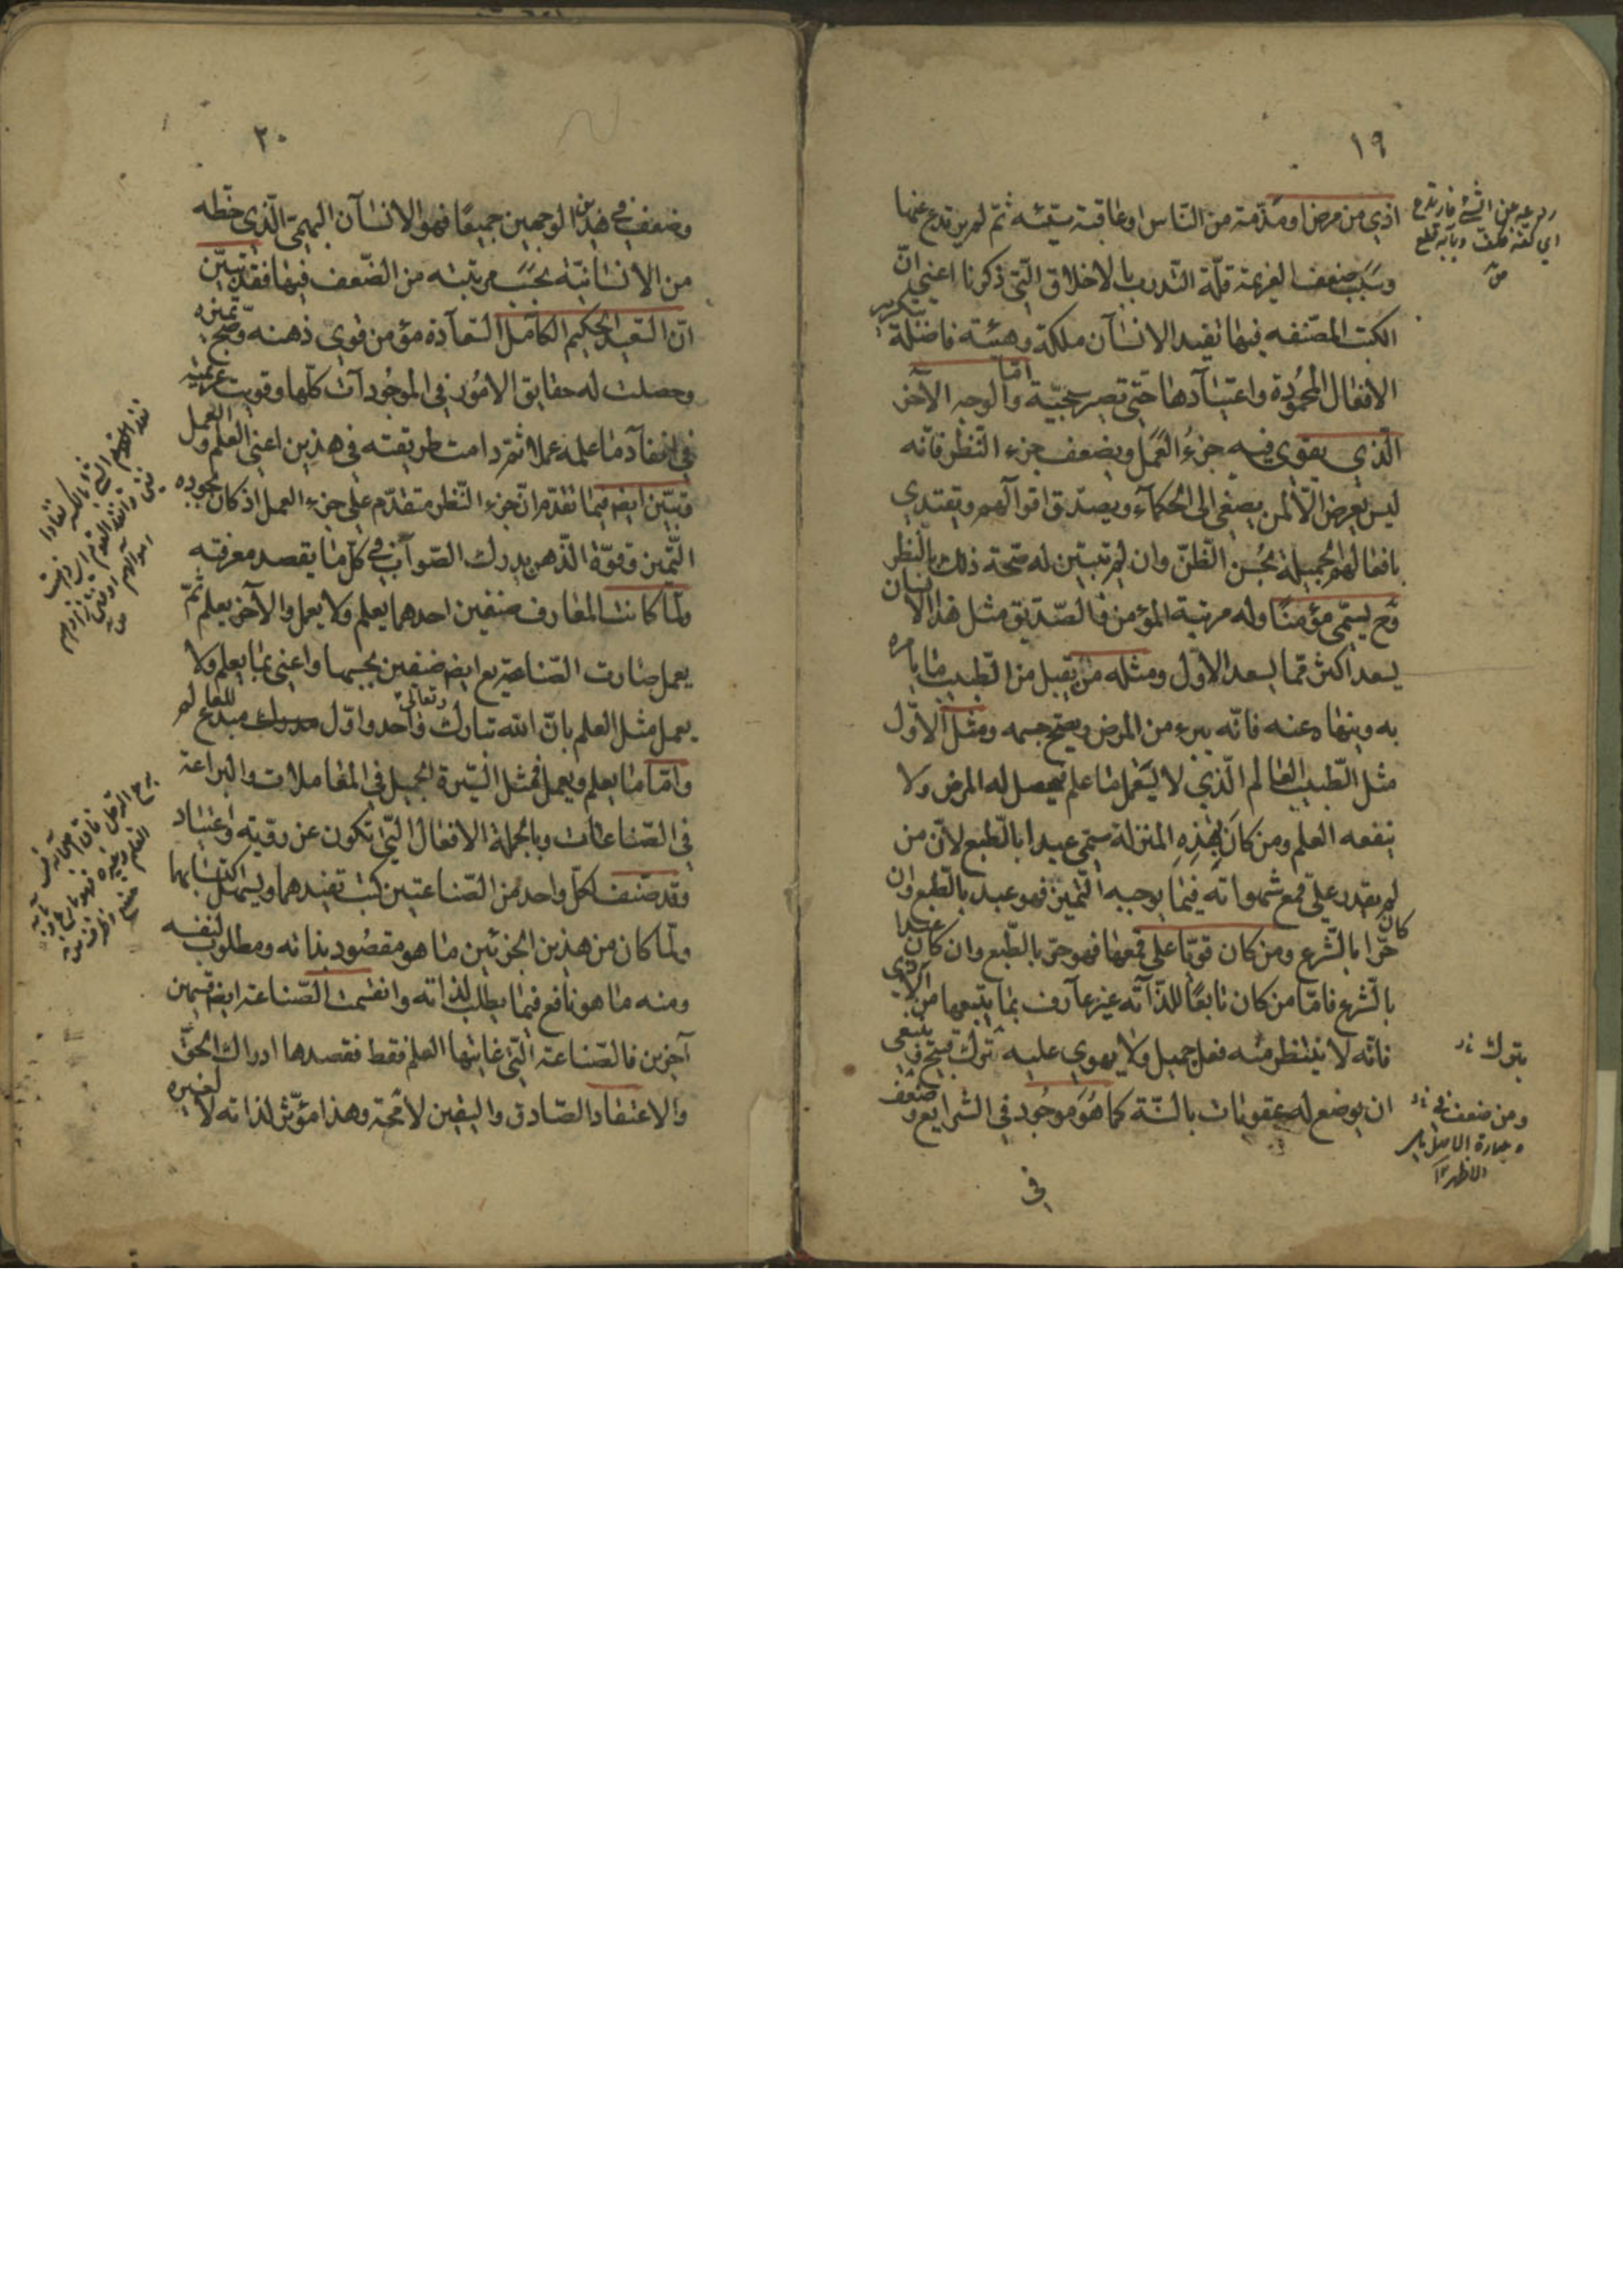 ١٩
اذي من مرض او مذمّة من النّاس او عاقبة سيّئه ثمّ لم يرتدع عنها
وسبب ضعف العزيمة قلّة التّدرب بالاخلاق الّتي ذكرنا اعني انّ
الكتب المصنّفه فيها تفيد الانسان ملكة وهيئة فاضلة بتكرير
الافعال المحمودة واعتيادها حتّى تصير سجيّة وامّا الوجه الآخر
الّذي يقوي فيه جزءُ العمل ويضعف جزء النّظر فانّه
ليس يعرض الّا لمن يصغي الى الحكمآء ويصدّيق اقوآلهم ويقتدي
بافعالهم الجميلة بحُسن الظّنّ وان لم تتبيّن له صحّة ذلك بالنظر
وح يسمّي مؤمنًا وله مرتبة المؤمن فالصّديق مثل هذا الانسان
يسعد اكثر ممّا يسعد الاوّل ومثله من يقبل من الطّبيب ما يامره
به وينهاه عنه فانّه يبرء من المرض ويصحّ جسمه ومثل الاوّل
مثل الطّبيب العالم الّذي لا يستعمل ما علم فيحصل له المرض ولا
ينفعه العلم ومن كان بهذه المنزلة سمّي عبدا بالطّبع لانّ من
لم يقدر علىّ قمع شهواته فيما يوجبه التّميز فهو عبد بالطّبع وان
كان حرّا بالشّرع ومن كان قويّا على قمعها فهو حرّ بالطّبع وان كان عبدا
بالشّرع فامّا من كان تابعًا للذّآته غير عارف بما يتبعها من الاذي
فانّه لا ينتظر منه فعل جميل ولا يهوي عليه ترك قبيح فينبغي
ان يوضع له عقوبات بالسّنّة كما هو موجود في الشرايع وضعف
في
ردعه عن الشيء فارتدع
اي كفّه فكفّ وبابه قطع
ص
بترك
ومن ضعف في
٢٠
وضعف في هذين الوجهين جميعًا فهو الانسان البهيمي الّذي حظّه
من الانسانيّة بحسب مرتبته من الضّعف فيها فقد تبيّن
انّ السّعيد الحكيم الكامل السّعادة هو من قوي ذهنه وصحّ تمييزه
وحصلت له حقايق الامور في الموجودات كلّها وقويت عزيمته
في انفاد ما علمه عملا ثمّ دامت طريقته في هذين اعني العلم والعمل
وتبيّن ايض فيما تقدّم انّ جزء النّظر متقدّم على جزء العمل اذ كان بجوده
التّميز وقوّة الذّهن يدرك الصّواب في كلّ ما يقصد معرفته
ولمّا كانت المعارف صنفين احدهما يعلم ولا يعمل والآخر يعلم ثمّ
يعمل صارت الصّناعة مع ايض صنفين بحسبها واعني بما يعلم ولا
يعمل مثل العلم بانّ الله تبارك وتعالى واحد واوّل مبدع للعالم
وامّا ما يعلم ويعمل فمثل السّيرة الجميل في المعاملات والبراعة
في الصّناعات وبالجملة الافعال الّتي تكون عن رويّه واعتياد
وقد صنّف لكلّ واحد من الصّناعتين كتب تفيدهما ويسهل اكتسابهما
ولمّا كان من هذين الجزئين ما هو مقصود بذاته ومطلوب لنفسه
ومنه ما هو نافع فيما يطلب لذاته وانقسمت الصّناعة ايض قسمين
آخرين فالصّناعة الّتي غايتها العلم فقط فقصدها ادراك الحقّ
والاعتقاد الصّادق واليقين لا محة وهذا مؤثر لذاته لا لغيره